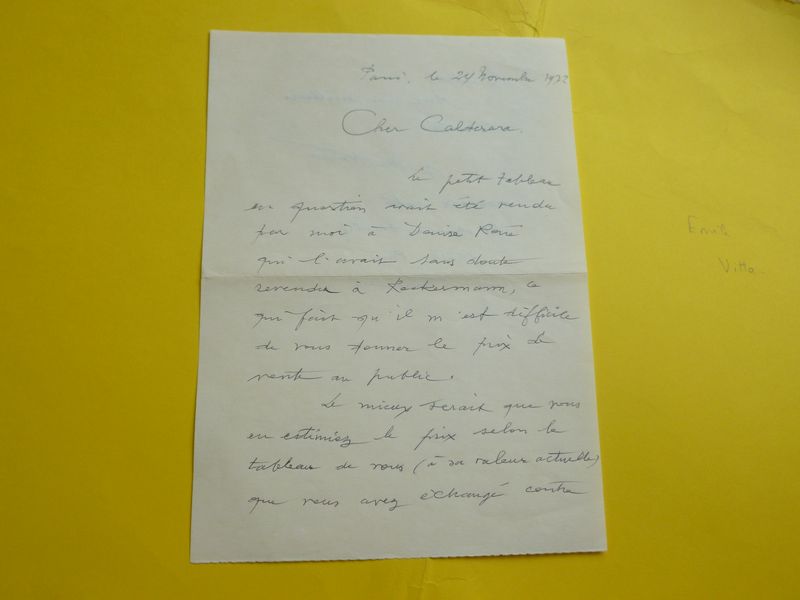 Paris, le 24 Novembre 1972
Cher Calderara.
Le petit tableau
en question avait été vendu
par moi à Denise René
qui l'avait sans doute
revendu à Lockermann, ce
qui fait qu'il m'est difficile
de vous donner le prix de
vente au public.
Le mieux serait que vous
en estimiez le prix selon le
tableau de vous (à sa valeur actuelle)
que vous avez échangé contre
Emile